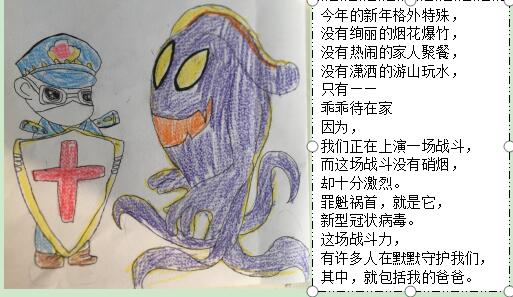 今年的新年格外特殊，
没有绚丽的烟花爆竹，
没有热闹的家人聚餐，
没有潇洒的游山玩水，
只有——
乖乖待在家
因为，
我们正在上演一场战斗，
而这场战斗没有硝烟，
却十分激烈。
罪魁祸首，就是它，
新型冠状病毒。
这场战斗力，
有许多人在默默守护我们，
其中，就包括我的爸爸。